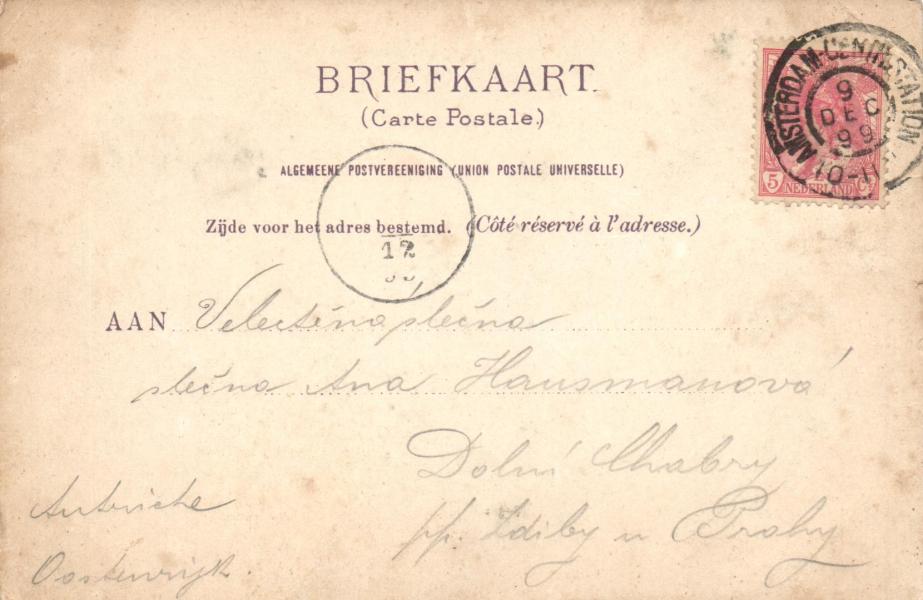 BRIEFKAART.
(Carte Postale.)
ALGEMEENE POSTVEREENIGING (UNION POSTALE UNIVERSELLE)
Zijde voor het adres bestemd. (Côté réservé à l'adresse.)
AMSTERDAM-CENTR:STATION
9
DEC
99
10-11
5 NEDERLAND Ct
12
AAN Velectěná slečna
slečna Ana Hausmanová
Dolní Chabry
pp. Zdiby u Prahy
Autriche
Oostenrijk.